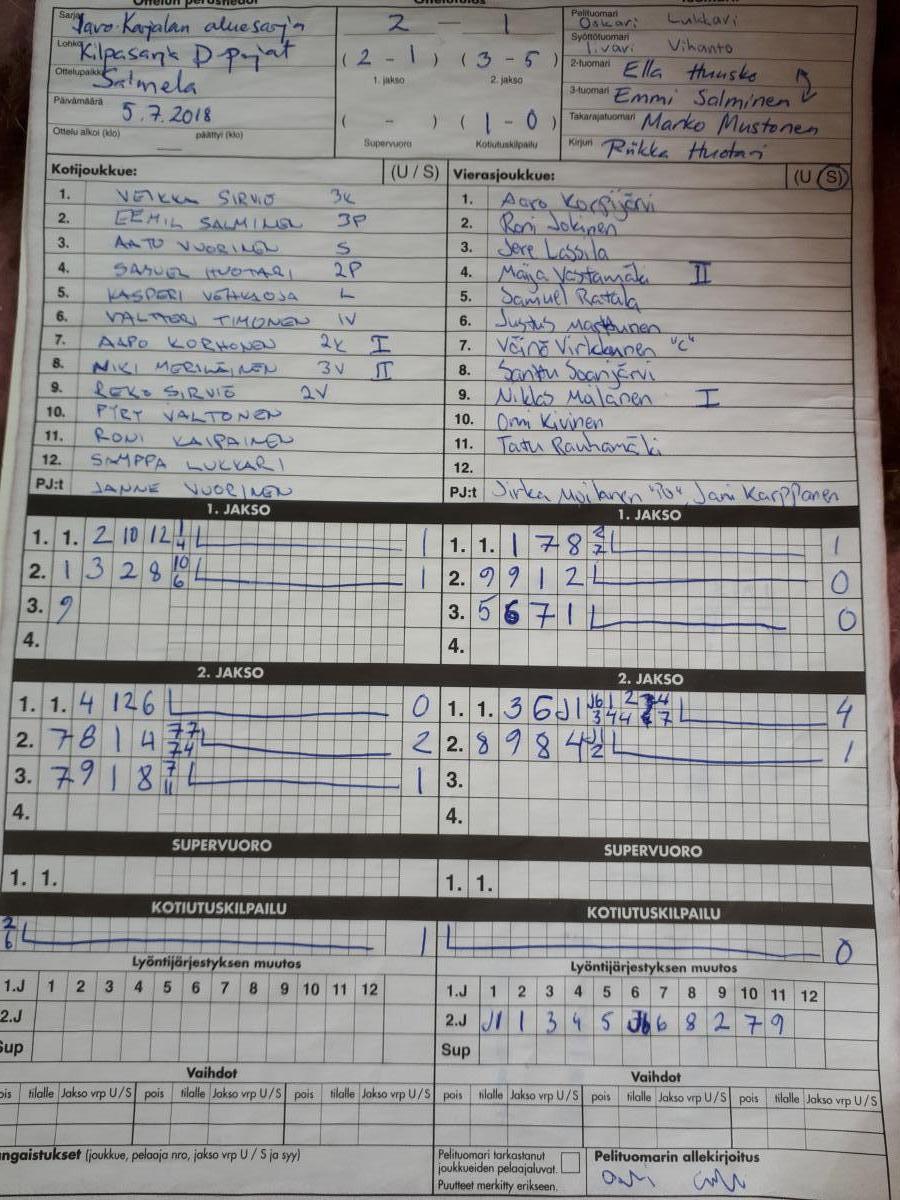 Ottelun perustiedot
Sarja Savo-Karjalan aluesarja
Lohko Kilpasarja D pojat
Ottelupaikka Salmela
Päivämäärä 5.7.2018
Ottelu alkoi (klo) päättyi (klo)
Ottelutulos
2 - 1
(2 - 1) (3 - 5)
1. jakso 2. jakso
( - ) (1 - 0)
Supervuoro Kotiutuskilpailu
Pelituomari Oskari Lukkari
Syöttötuomari Iivari Vihanto
2-tuomari Ella Huusko
3-tuomari Emmi Salminen
Takarajatuomari Marko Mustonen
Kirjuri Riikka Huotari
Kotijoukkue: (U / S)
1. VEIKKA SIRVIÖ 3K
2. EEMIL SALMINEN 3P
3. AATU VUORINEN S
4. SAMUEL HUOTARI 2P
5. KASPERI VEHKAOJA L
6. VALTTERI TIMONEN IV
7. AAPO KORHONEN 2K I
8. NIKI MERILÄINEN 3V II
9. REKO SIRVIÖ 2V
10. PYRY VALTONEN
11. RONI KAIPAINEN
12. SAMPPA LUKKARI
PJ:t JANNE VUORINEN
Vierasjoukkue: (U / S)
1. Aaro Korpijärvi
2. Roni Jokinen
3. Jere Lassila
4. Maija Vastamäki II
5. Samuel Ratala
6. Justus Marttunen
7. Väinö Virkkunen "C"
8. Santtu Saarijärvi
9. Niklas Malanen I
10. Onni Kivinen
11. Tatu Rauhamäki
12.
PJ:t Jirka Moilanen "PJ", Jani Karppanen
1. JAKSO
1. 1. 2 10 12 1 4 1
2. 1 3 2 8 10 6 1
3. 9
4.
1. JAKSO
1. 1. 1 7 8 2 2 1
2. 9 9 1 2 0
3. 5 6 7 1 0
4.
2. JAKSO
1. 1. 4 12 6 0
2. 7 8 1 4 77 74 2
3. 7 9 1 8 7 11 1
4.
2. JAKSO
1. 1. 3 6 J1 J6 1 2 4 3 4 4 7 4
2. 8 9 8 4 J1 2 1
3.
4.
SUPERVUORO
1. 1.
SUPERVUORO
1. 1.
KOTIUTUSKILPAILU
2 6 1
KOTIUTUSKILPAILU
0
Lyöntijärjestyksen muutos
1.J 1 2 3 4 5 6 7 8 9 10 11 12
2.J
Sup
Lyöntijärjestyksen muutos
1.J 1 2 3 4 5 6 7 8 9 10 11 12
2.J J1 1 3 4 5 J6 6 8 2 7 9
Sup
Vaihdot
pois tilalle Jakso vrp U/S pois tilalle Jakso vrp U/S pois tilalle Jakso vrp U/S
Vaihdot
pois tilalle Jakso vrp U/S pois tilalle Jakso vrp U/S pois tilalle Jakso vrp U/S
ngaistukset (joukkue, pelaaja nro, jakso vrp U / S ja syy)
Pelituomari tarkastanut
joukkueiden pelaajaluvat.
Puutteet merkitty erikseen.
Pelituomarin allekirjoitus